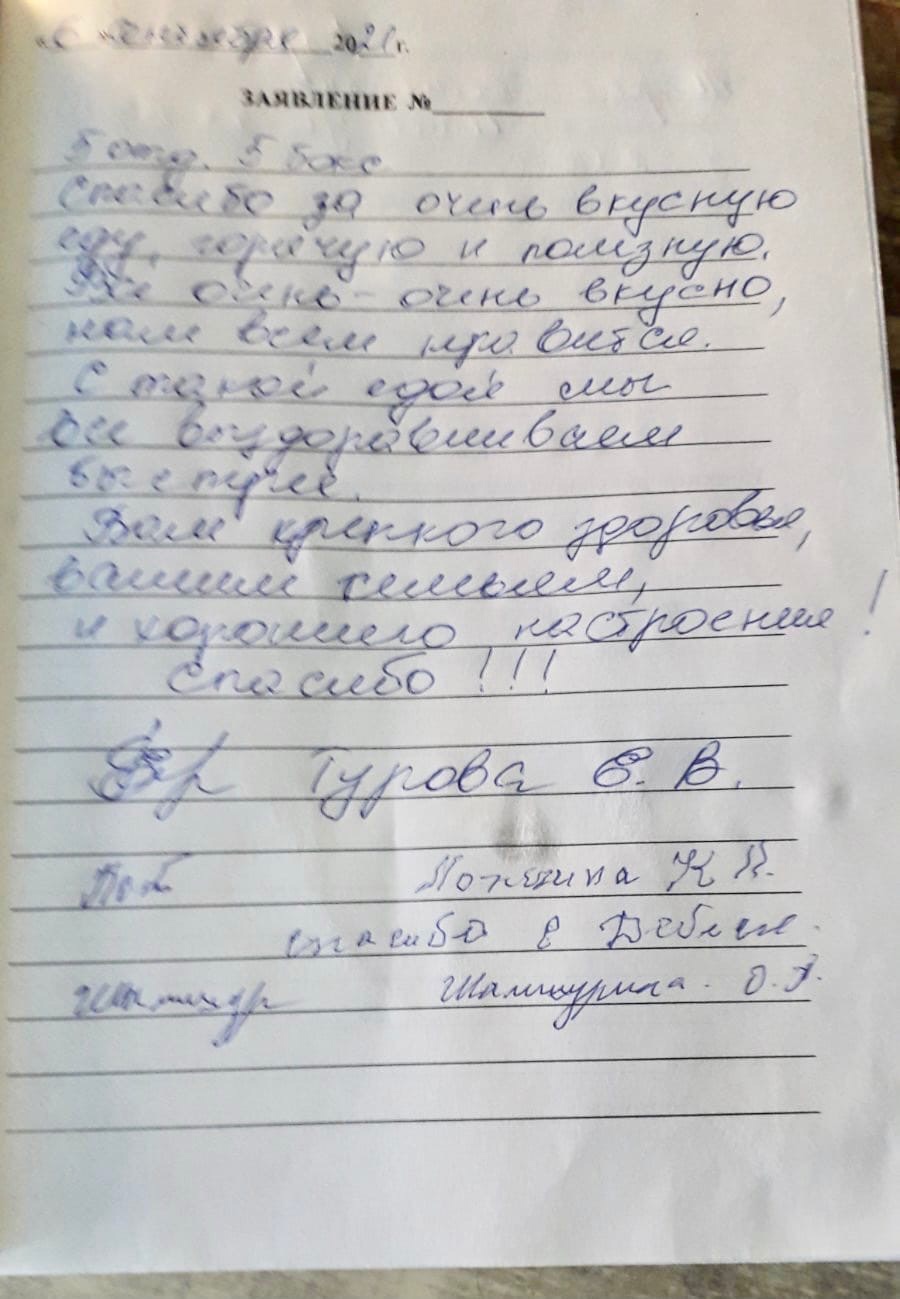 «6» сентября 2021 г.
ЗАЯВЛЕНИЕ №
5 отд. 5 бокс
Спасибо за очень вкусную
еду, горячую и полезную.
Всё очень-очень вкусно,
нам всем нравится.
С такой едой мы
выздоравливаем
быстрее.
Вам крепкого здоровья,
вашим семьям,
и хорошего настроения!
Спасибо!!!
Турова Е. В.
К
спасибо
О. А.